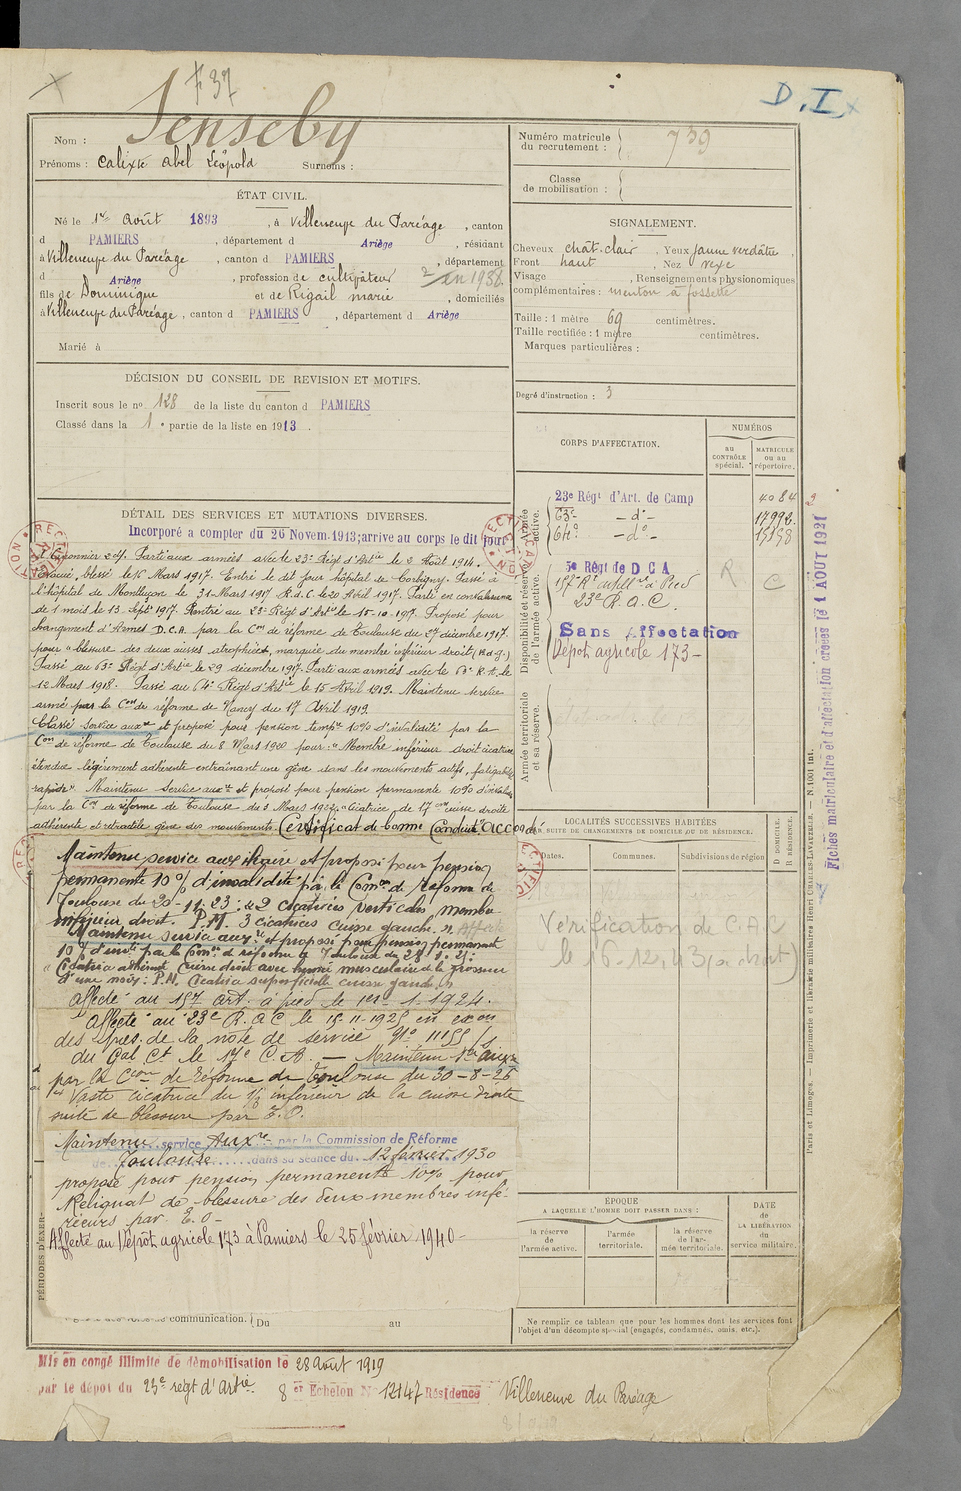 F 37
D.I.
Nom : Senseby
Prénoms : Calixte Abel Léopold Surnoms :
Numéro matricule
du recrutement : 739
Classe
de mobilisation :
ÉTAT CIVIL.
Né le 1er Août 1893, à Villeneuve du Paréage, canton
d PAMIERS, département d Ariège, résidant
à Villeneuve du Paréage, canton d PAMIERS, département
d Ariège, profession de cultivateur
en 1938
fils de Dominique et de Rigail marie, domiciliés
à Villeneuve du Paréage, canton d PAMIERS, département d Ariège
Marié à
SIGNALEMENT.
Cheveux chât. clair, Yeux jaune verdâtre,
Front haut, Nez vexe
Visage , Renseignements physionomiques
complémentaires : menton à fossette
Taille : 1 mètre 69 centimètres.
Taille rectifiée : 1 mètre centimètres.
Marques particulières :
Degré d'instruction : 3
DÉCISION DU CONSEIL DE REVISION ET MOTIFS.
Inscrit sous le no 128 de la liste du canton d PAMIERS
Classé dans la 1e partie de la liste en 1913.
DÉTAIL DES SERVICES ET MUTATIONS DIVERSES.
Incorporé a compter du 26 Novem. 1913; arrive au corps le dit jour
et Canonnier 2e cl. Parti aux armées avec le 23e Régt d'Artie le 2 Août 1914.
Évacué, blessé le 16 Mars 1917. Entré le dit jour hôpital de Corbigny. Passé à
l'hôpital de Montluçon le 31 Mars 1917 R.d.C. le 20 Avril 1917. Parti en convalescence
de 1 mois le 13 Sept 1917. Rentré au 23e Régt d'Artie le 15.10.1917. Proposé pour
changement d'Armes D.C.A. par la Con de réforme de Toulouse du 27 décembre 1917.
pour "blessure des deux cuisses atrophiées, marquée du membre inférieur droit (R.d.g.)
Passé au 63e Régt d'Artie le 29 décembre 1917. Parti aux armées avec le 63e R.A. le
12 Mars 1918. Passé au 64e Régt d'Artie le 15 Avril 1919. Maintenu service
armé par la Con de réforme de Nancy du 17 Avril 1919
Classé service auxre et proposé pour pension tempre 10% d'invalidité par la
Con de réforme de Toulouse du 8 Mars 1920 pour: "Membre inférieur droit cicatrice
étendue légèrement adhérente entraînant une gêne dans les mouvements actifs, fatigabilité
rapide". Maintenu service auxre et proposé pour pension permanente 10% d'invalidité
par la Con de réforme de Toulouse du 3 Mars 1922 "cicatrice de 17 cm cuisse droite
adhérente et rétractile gêne des mouvements. Certificat de bonne Conduite accordé
Maintenu service auxiliaire et proposé pour pension
permanente 10% d'invalidité par la Comon de Réforme de
Toulouse du 20-11-23: "2 cicatrices verticales membre
inférieur droit. P.M. 3 cicatrices cuisse gauche."
Maintenu service auxre et proposé pour pension permanente
10% d'invté par la Comon de réforme de Toulouse du
Cicatrice adhérente cuisse droite avec hernie musculaire de la grosseur
d'une noix: P.M. Cicatrice superficielle cuisse gauche.
Affecté au 157 art. à pied le 1er-1-1924.
Affecté au 23e R.A.C le 15-11-1925 en exon
des pres. de la note de service No 11155
du Gal Ct le 17e C.A. — Maintenu Sce auxre
par la Con de Réforme de Toulouse du 30-8-26
"Vaste cicatrice du 1/3 inférieur de la cuisse droite
suite de blessure par E.O.
Maintenu service Auxre par la Commission de Réforme
de Toulouse dans sa séance du 12 février 1930
proposé pour pension permanente 10% pour
Reliquat de blessure des deux membres infé-
rieurs par E.O-
Affecté au Dépôt agricole 173 à Pamiers le 25 février 1940-
PÉRIODES D'EXER-
communication. Du au
CORPS D'AFFECTATION.
NUMÉROS
au
CONTRÔLE
spécial.
MATRICULE
ou au
répertoire.
Armée
active.
23e Régt d'Art. de Camp 4084
63e — do — 17992
64e — do — 15158
Disponibilité et réserve
de l'armée active.
5e Régt de D C A
157 Rt artill ie à Pied
23e R.a.C.
R C
Sans Affectation
Dépôt agricole 173-
Armée territoriale
et sa réserve.
LOCALITÉS SUCCESSIVES HABITÉES
PAR SUITE DE CHANGEMENTS DE DOMICILE OU DE RÉSIDENCE.
Dates.
Communes.
Subdivisions de région
D DOMICILE.
R RÉSIDENCE.
Vérification de C.A.C
le 16-12-43
ÉPOQUE
A LAQUELLE L'HOMME DOIT PASSER DANS :
la réserve
de
l'armée active.
l'armée
territoriale.
la réserve
de l'ar-
mée territoriale.
DATE
de
LA LIBÉRATION
du
service militaire.
Ne remplir ce tableau que pour les hommes dont les services font
l'objet d'un décompte spécial (engagés, condamnés, omis, etc.).
Paris et Limoges. — Imprimerie et librairie militaires Henri CHARLES-LAVAUZELLE.
Fiches matriculaire et d'affectation créées le 1 AOUT 1921
Mis en congé illimité de démobilisation le 28 Août 1919
par le dépôt du 23e régt d'Artie. 8e Echelon No 12147 Résidence Villeneuve du Paréage